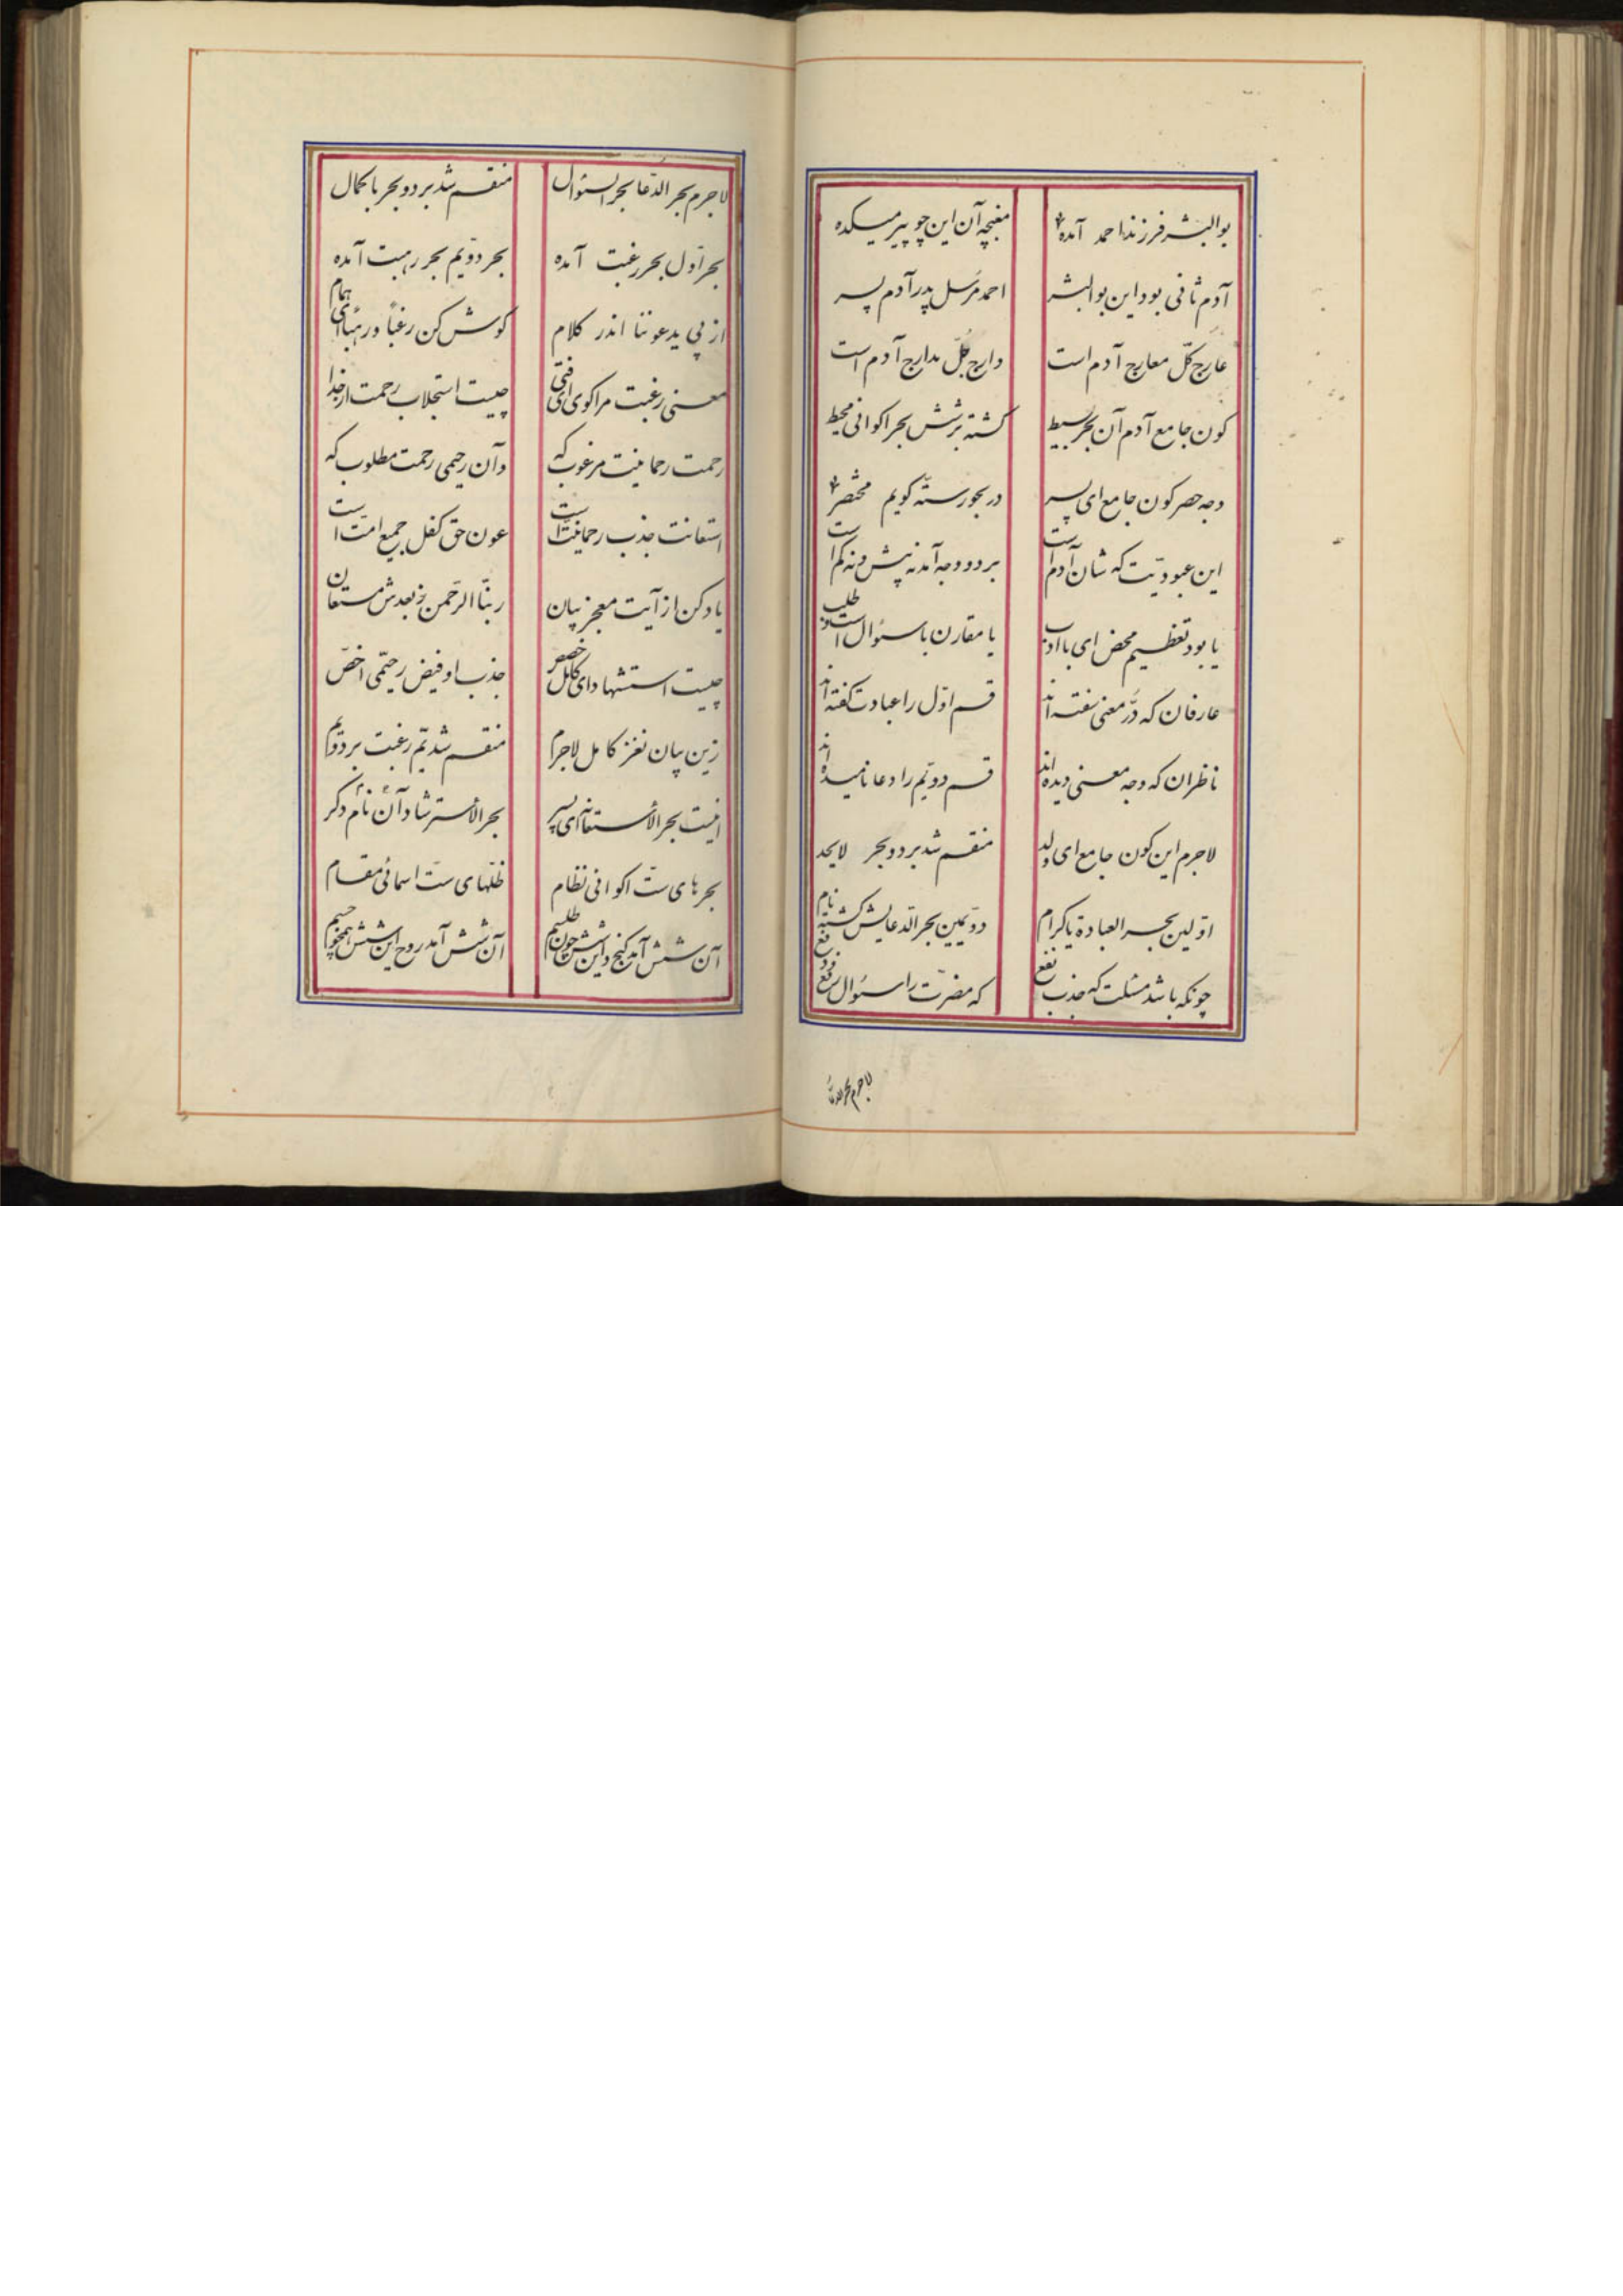 بوالبشر فرزند احمد آمده مغبچه آن این چو پیر میکده
آدم ثانی بود این بوالبشر احمد مرسل پدر آدم پسر
عارج کلّ معارج آدم است دارج جُلّ مدارج آدم است
کون جامع آدم آن بحر بسیط کشته بر شش بحر اکوانی محیط
وجه حصر کون جامع ای پسر در بحور ستّه کویم مختصر
این عبودیّت که شان آدم است بر دو وجه آمد نه پیش و نه کم است
یا بود تعظیم محض ای با ادب یا مقارن با سئوال است و طلب
عارفان که دُرّ معنی سفته اند قسم اوّل را عبادت کفته اند
ناظران که وجه معنی دیده اند قسم دویّم را دعا نامیده اند
لاجرم این کون جامع ای ولد منقسم شد بر دو بحر لایحد
اوّلین بحر العبادة یا کرام دویّمین بحر الدّعایش کشته نام
چونکه باشد مسئلت که جذب نفع که مضرّت را سئوال رفع و دفع
لاجرم بحر الدّعا
لاجرم بحر الدّعا بحر السئوال منقسم شد بر دو بحر با کمال
بحر اوّل بحر رغبت آمده بحر دویّم بحر رهبت آمده
از پی یدعوننا اندر کلام کوش کن رغباً و رهباً ای همام
معنی رغبت مرا کوی ای فتی چیست استجلاب رحمت از خدا
رحمت رحمانیت مرغوب که وآن رحیمی رحمت مطلوب که
استعانت جذب رحمانیّت است عون حق کفل جمیع امّت است
یاد کن از آیت معجز بیان ربّنا الرّحمن و بعدش مستعان
چیست استشهاد ای کامل خصص جذب او فیض رحیمی اخصّ
زین بیان نغز کامل لاجرم منقسم شد یمّ رغبت بر دو یم
اینت بحر الأستعانه ای پسر بحر الأسترشاد آن نام دکر
بحرهای ستّ اکوانی نظام ظلّهای ستّ اسمائی مقام
آن شش آمد کنج و این شش چون طلسم آن شش آمد روح این شش همچو جسم